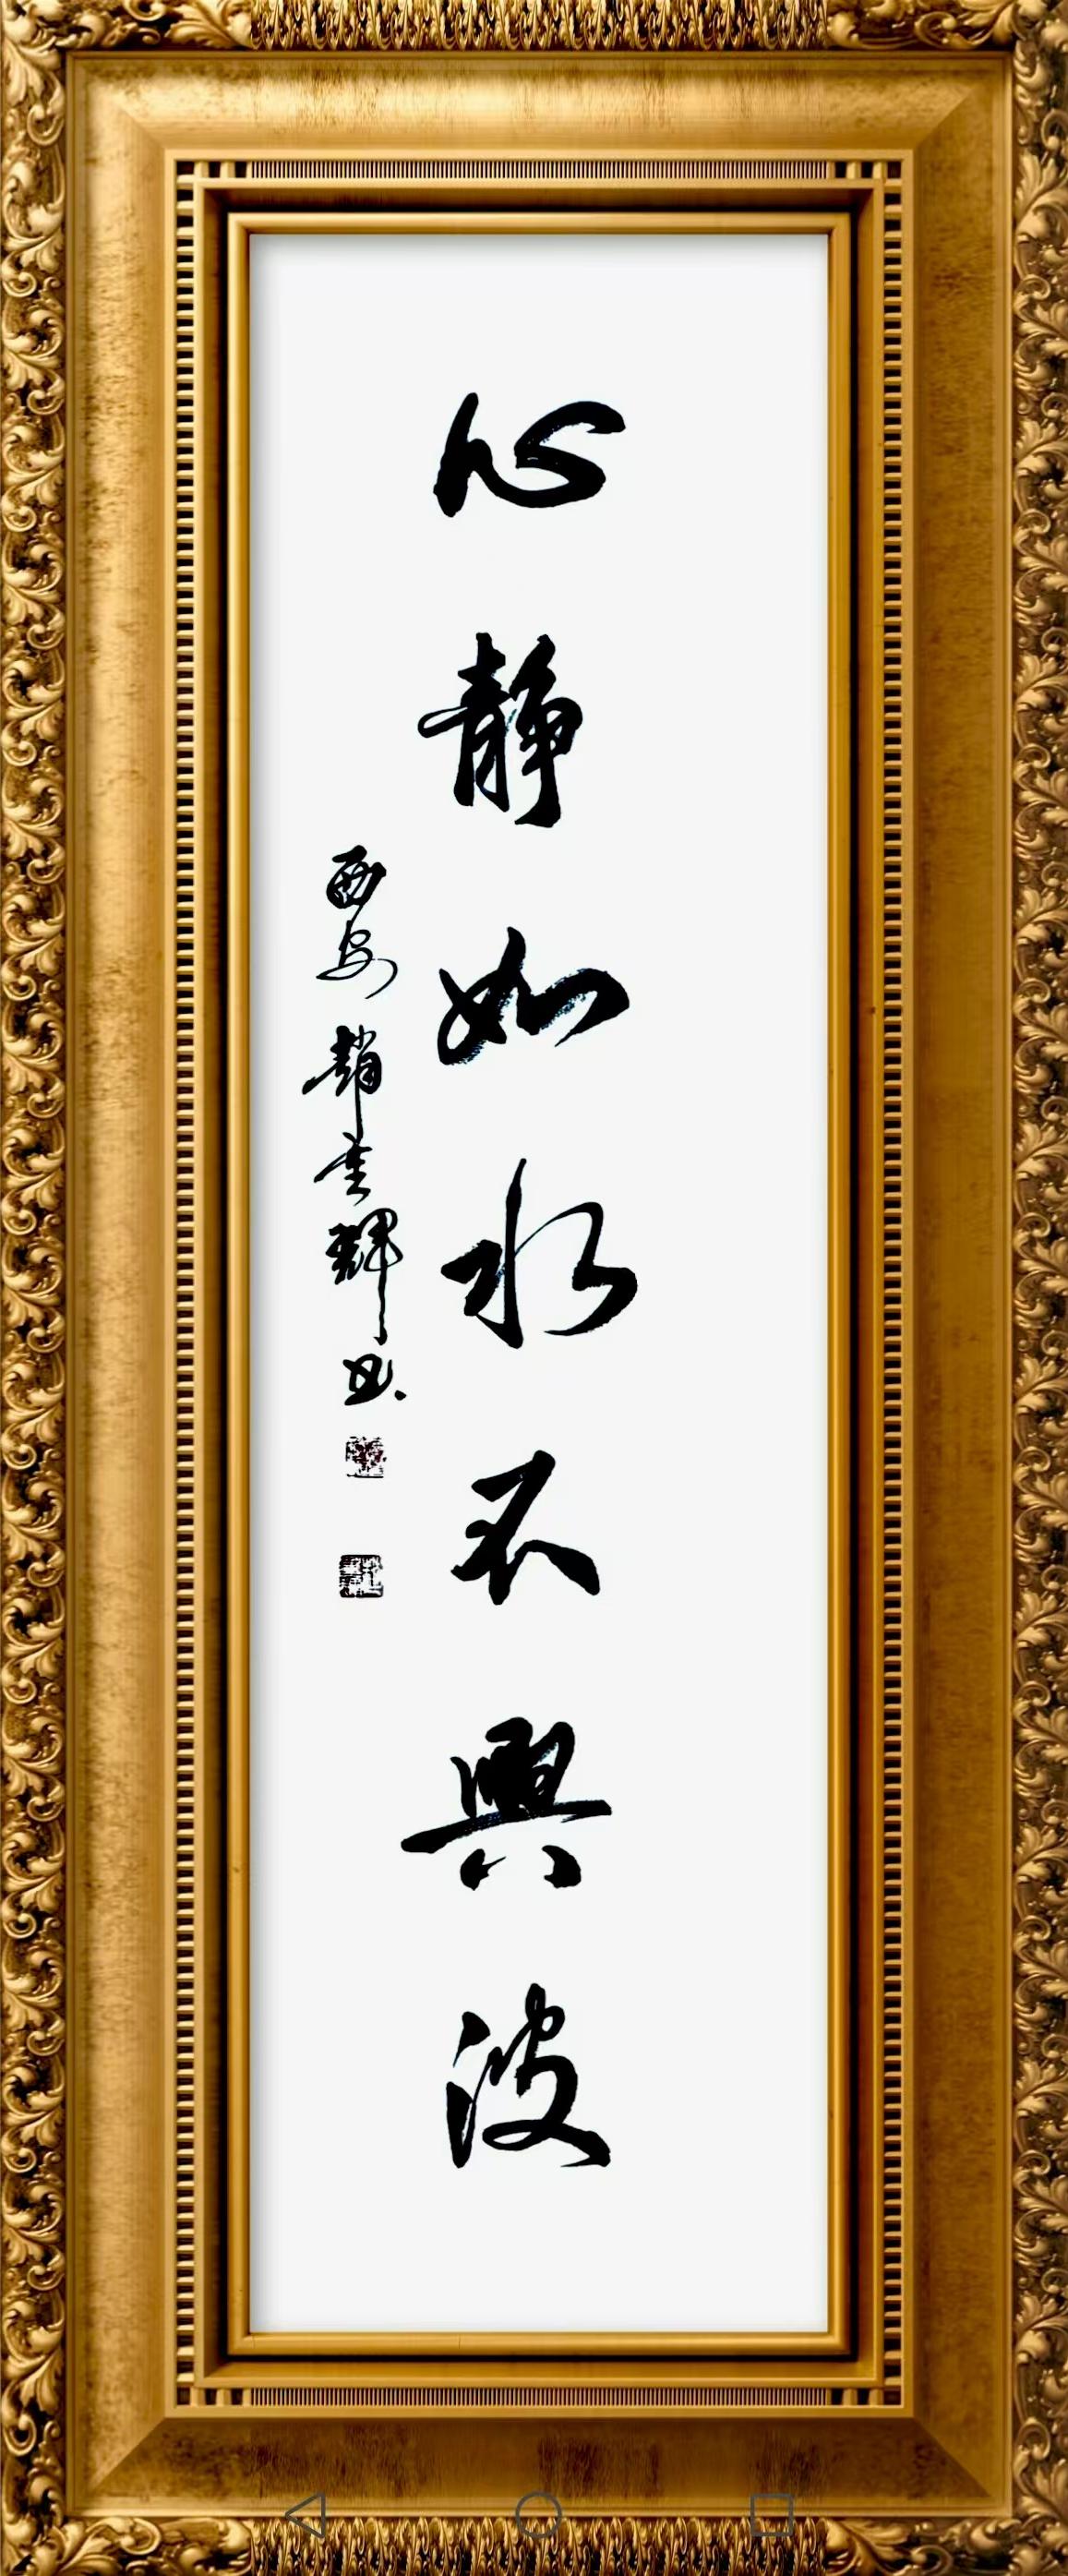 心静如水不興波
西安 趙雲輝書